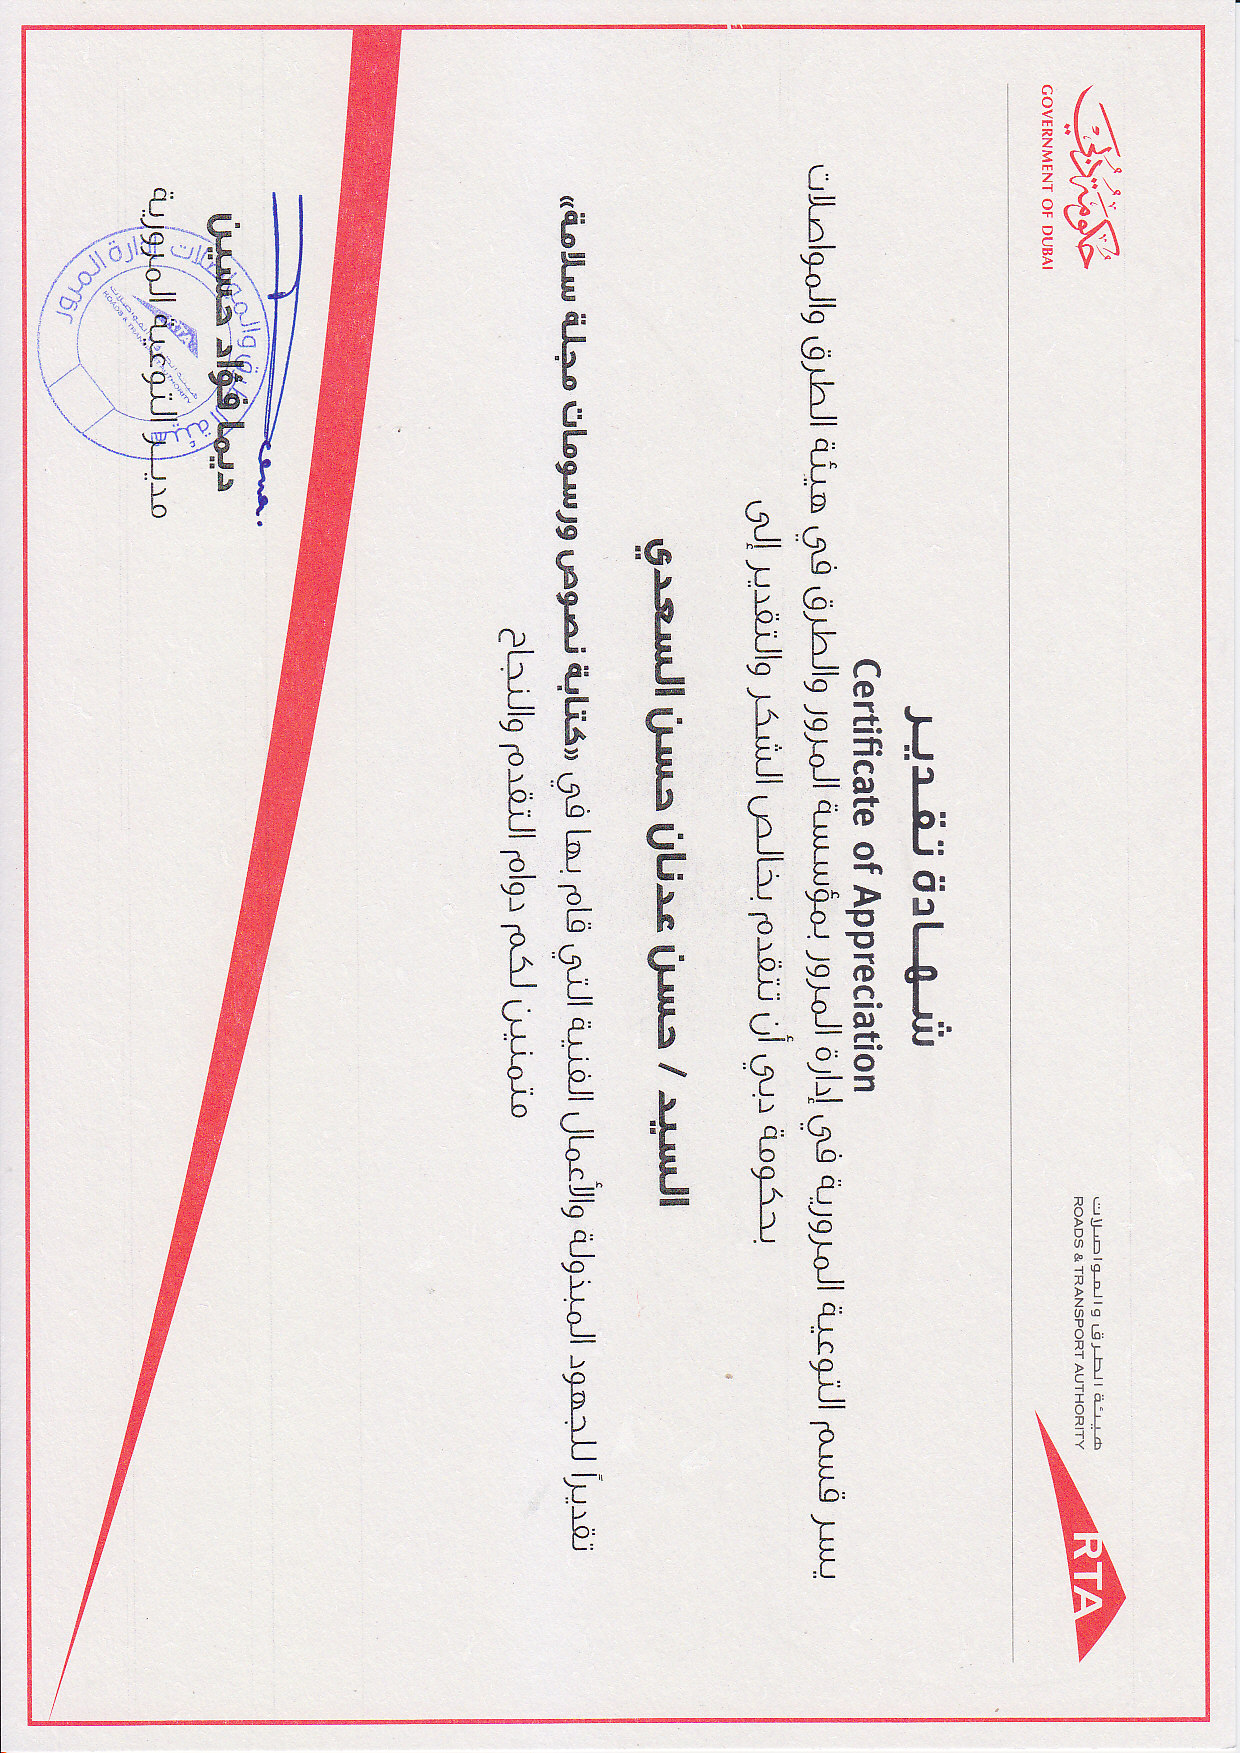 حكومة دبي
GOVERNMENT OF DUBAI
هيئة الطرق والمواصلات
ROADS & TRANSPORT AUTHORITY
RTA
شهـــادة تـقـــديـــر
Certificate of Appreciation
يسر قسم التوعية المرورية في إدارة المرور بمؤسسة المرور والطرق في هيئة الطرق والمواصلات
بحكومة دبي أن تتقدم بخالص الشكر والتقدير إلى
السيد / حسن عدنان حسن السعدي
تقديراً للجهود المبذولة والأعمال الفنية التي قام بها في «كتابة نصوص ورسومات مجلة سلامة»
متمنين لكم دوام التقدم والنجاح
ديما فؤاد حسين
مديـــر التوعية المرورية
هيئة الطرق والمواصلات إدارة المرور
ROADS & TRANSPORT AUTHORITY
RTA